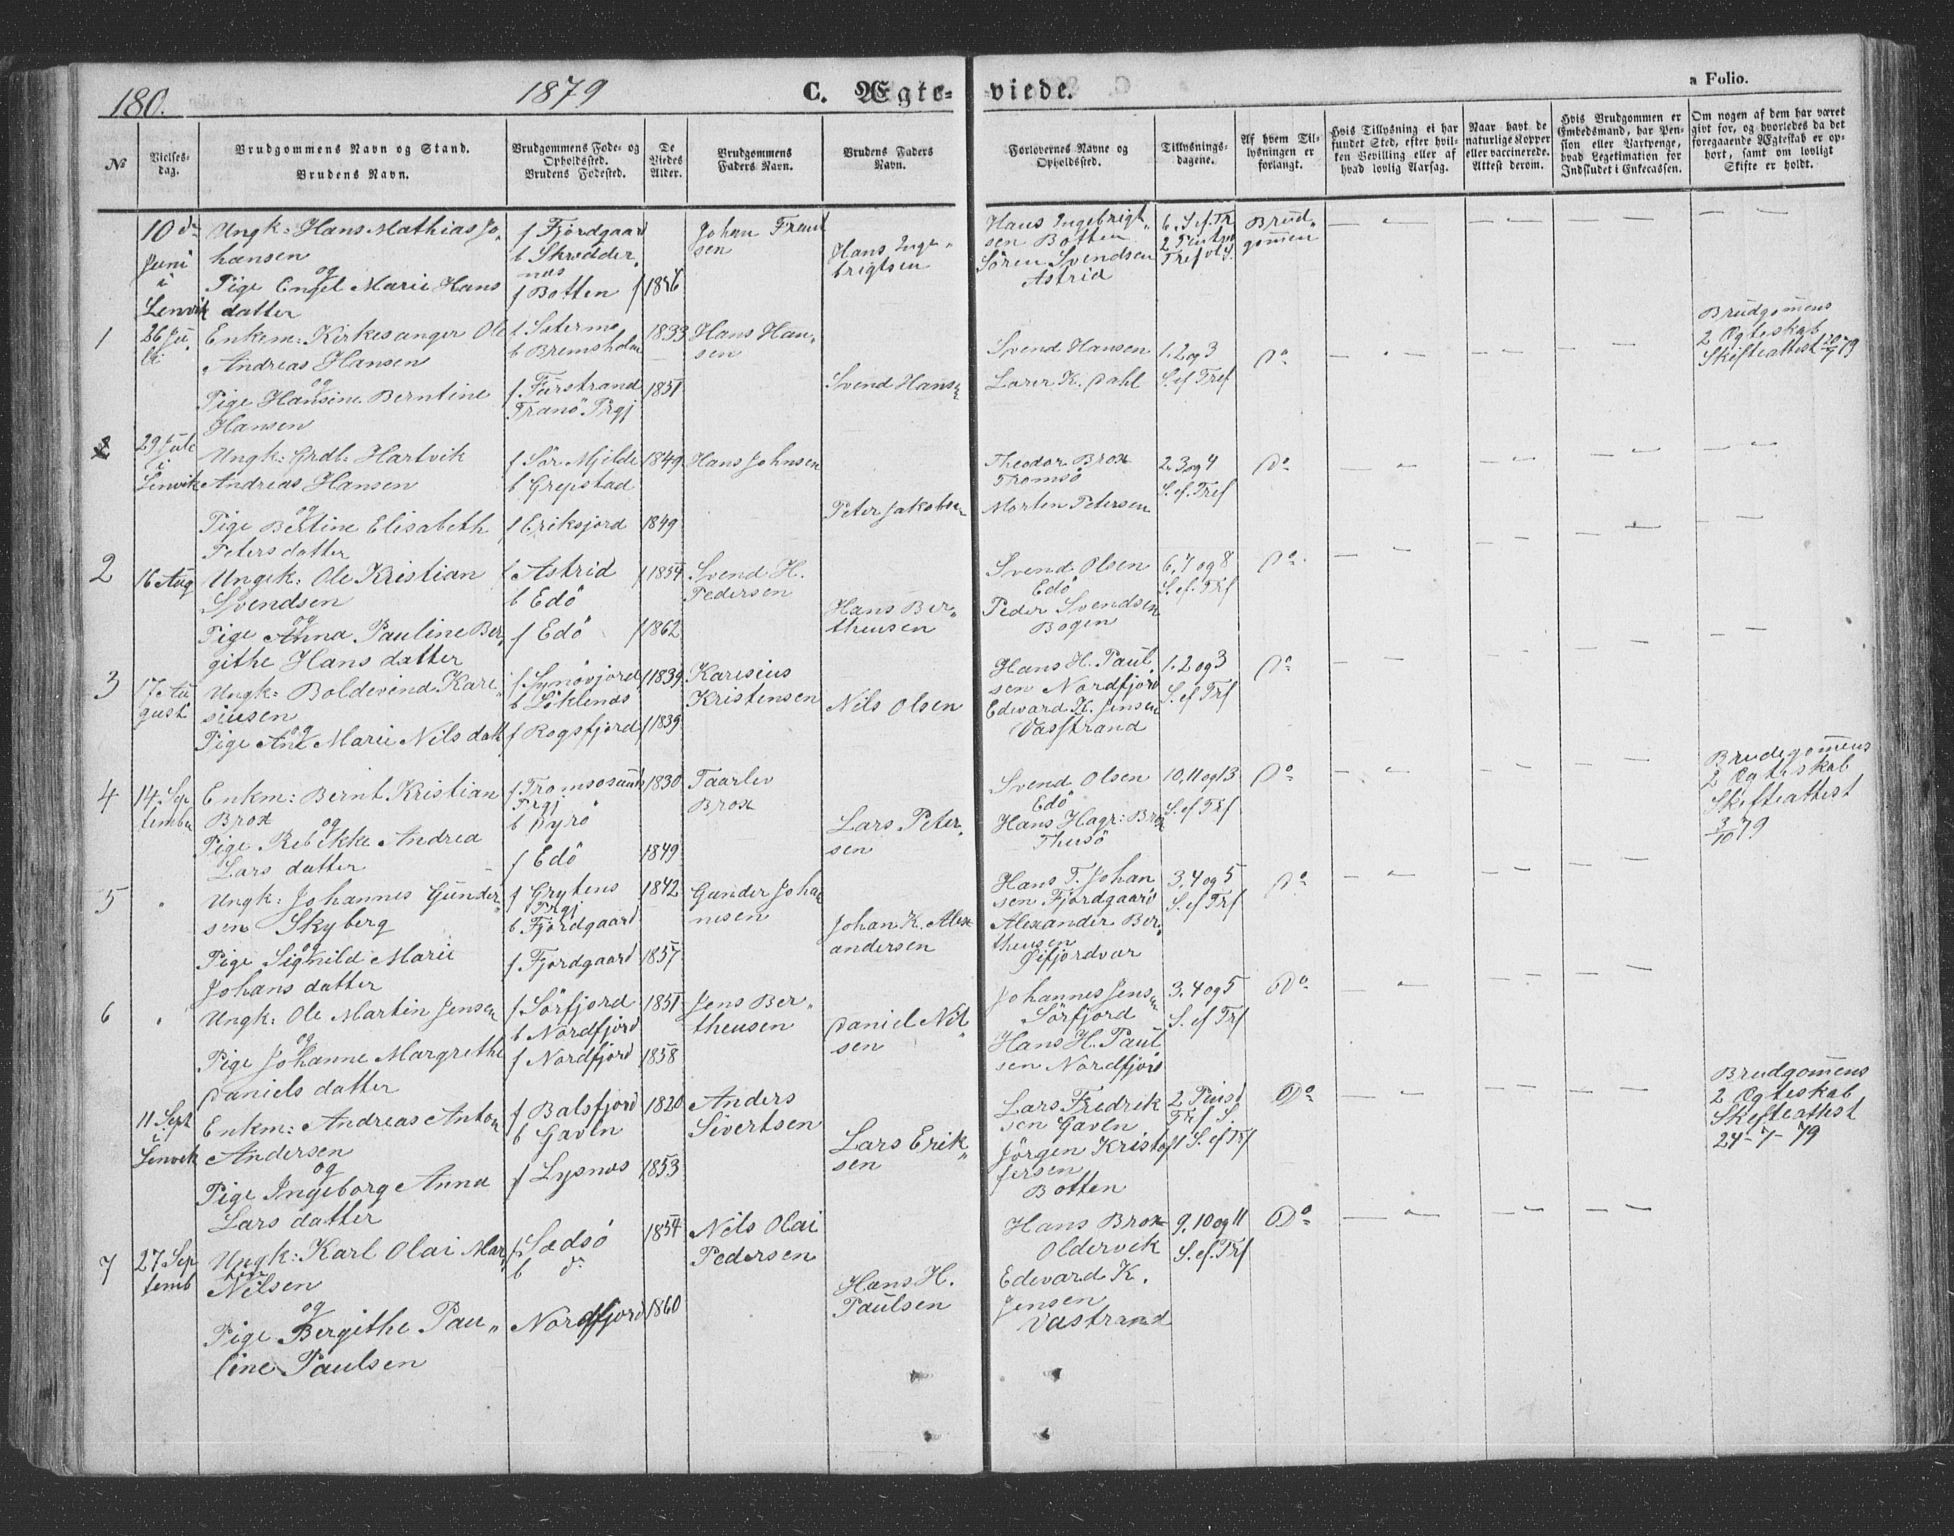 180.
1879
C. Ægte-viede.
a Folio.
No
Vielses-
dag.
Brudgommens Navn og Stand.
Brudens Navn.
Brudgommens Føde- og
Opholdssted.
Brudens Fødested.
De
Viedes
Alder.
Brudgommens
Faders Navn.
Brudens Faders
Navn.
Forlovernes Navne og
Opholdssted.
Tillysnings-
dagene.
Af hvem Til-
lysningen er
forlangt.
Hvis Tillysning ei har
fundet Sted, efter hvil-
ken Bevilling eller af
hvad lovlig Aarsag.
Naar havt de
naturlige Kopper
eller vaccinerede.
Attest derom.
Hvis Brudgommen er
Embedsmand, har Pen-
sion eller Vartpenge,
hvad Legetimation for
Indskudet i Enkecassen.
Om nogen af dem har været
givt for, og hvorledes da det
foregaaende Ægteskab er op-
hørt, samt om lovligt
Skifte er holdt.
10 d
Juni
i
Lenvik
Ungk: Hans Mathias Jo-
hansen
og
Pige Engel Marie Hans
datter
f Fjordgaard
b Skredder
næs
f Botten
1856
Johan
sen
Hans Inge
brigtsen
Hans Ingebrigt
sen Botten
Sören Svendsen
Astrid
6. S.ef.Tr
Brud
gommen
1
26 Ju
li
Enkem: Kirkesanger Ole
Andreas Hansen
og
Pige Hansine Berntine
Hansen
b Bremsholm
f. Finstrand
Tranö Prgj
1833
1851
Hans Han
sen
Svend Hansen
Svend Hansen
K. Dahl
1. 2 og 3
S. ef Tref
Do
Brudgomens
2 Ægteskab
Skifteattest 79
29 Juli
i
Lenvik
Ungk: Grdb. Hartvik
Andreas Hansen
og
Pige Bertine Elisabeth
Peters datter
f Sör Mjelde
b Grepstad
f Eriksjord
1849
1849
Hans Johnsen
Peter Jakobsen
Theodor Brox
Tromsö
Morten Petersen
2. 3 og 4
S. ef. Tref
Do
2
16 Aug
Ungk: Ole Kristian
Svendsen
og
Pige Anna Pauline Ber
githe Hans datter
f Astrid
b Edö
f Edö
1854
1862
Svend H.
Pedersen
Hans Ber
theusen
Svend Olsen
Edö
Peder Svendsen
Bogen
6, 7 og 8
S. ef. Trf
Do
3
17 Au
gust
Ungk: Boldevind Kare
siusen
og
Pige Ane Marie Nils datt
f Synövjord
b Löklends
f Rogsfjord
1839
1839
Karesius
Kristensen
Nils Olsen
Hans H. Paul
sen Nordfjord
Edevard K. Jensen
Vasstrand
1. 2 og 3
S. ef Trf
Do
4
14. Sep
tember
Enkm: Bernt Kristian
Brox
og
Pige Rebekke Andrea
Lars datter
f Tromsosund
Prgj
b Dyrö
f Edö
1830
1849
Taarlev
Brox
Lars Peter
sen
Svend Olsen
Edö
Hans Hagr: Brox
10, 11 og 13
S. ef Trf
Do
Brudegomens
2 Ægteskab
Skifteattest
3/10 79
5
Ungk: Johannes Gunder
sen Skyberg
og
Pige Signild Marie
Johans datter
f Grytens
Prgj
b Fjordgaard
f. Fjordgaard
1842
1857
Gunder Johan
nesen
Johan K. Alex
andersen
Hans T. Johan
sen Fjordgaard
Alexander Ber
theusen
Gifjordvær
3, 4 og 5
S. ef Trf
Do
6
Ungk: Ole Martin Jensen
og
Pige Johanne Margrethe
Daniels datter
f Sörfjord
b Nordfjord
f Nordfjord
1851
1858
Jens Ber
theusen
Daniel Nil
sen
Johannes Jensen
Sörfjord
Hans H. Paul
sen Nordfjord
3. 4 og 5
S. ef Trf
Do
11 Sept
i
Lenvik
Enkm: Andreas Anton
Andersen
og
Pige Ingeborg Anna
Lars datter
f Balsfjord
b Gavln
f Lysnæs
1820
1853
Anders
Sivertsen
Lars Erik
sen
Lars Fredrik
sen Gavln
Jörgen Kristof
fersen
Botten
2 Pinsd
Trf. S.
1 S. ef Trf
Do
Brudgomens
2 Ægteskab
Skifteattest
24-7-79
7
27 Sep
temb
Ungk: Karl Olai Mar
Nilsen
og
Pige Bergithe Pau
line Paulsen
f Sædsö
b do
Nordfjord
1854
1860
Nils Olai
Pedersen
Hans H.
Paulsen
Hans Brox
Oldervik
Edevard K.
Jensen
Vastrand
9. 10 og 11
S. ef. Trf
Do